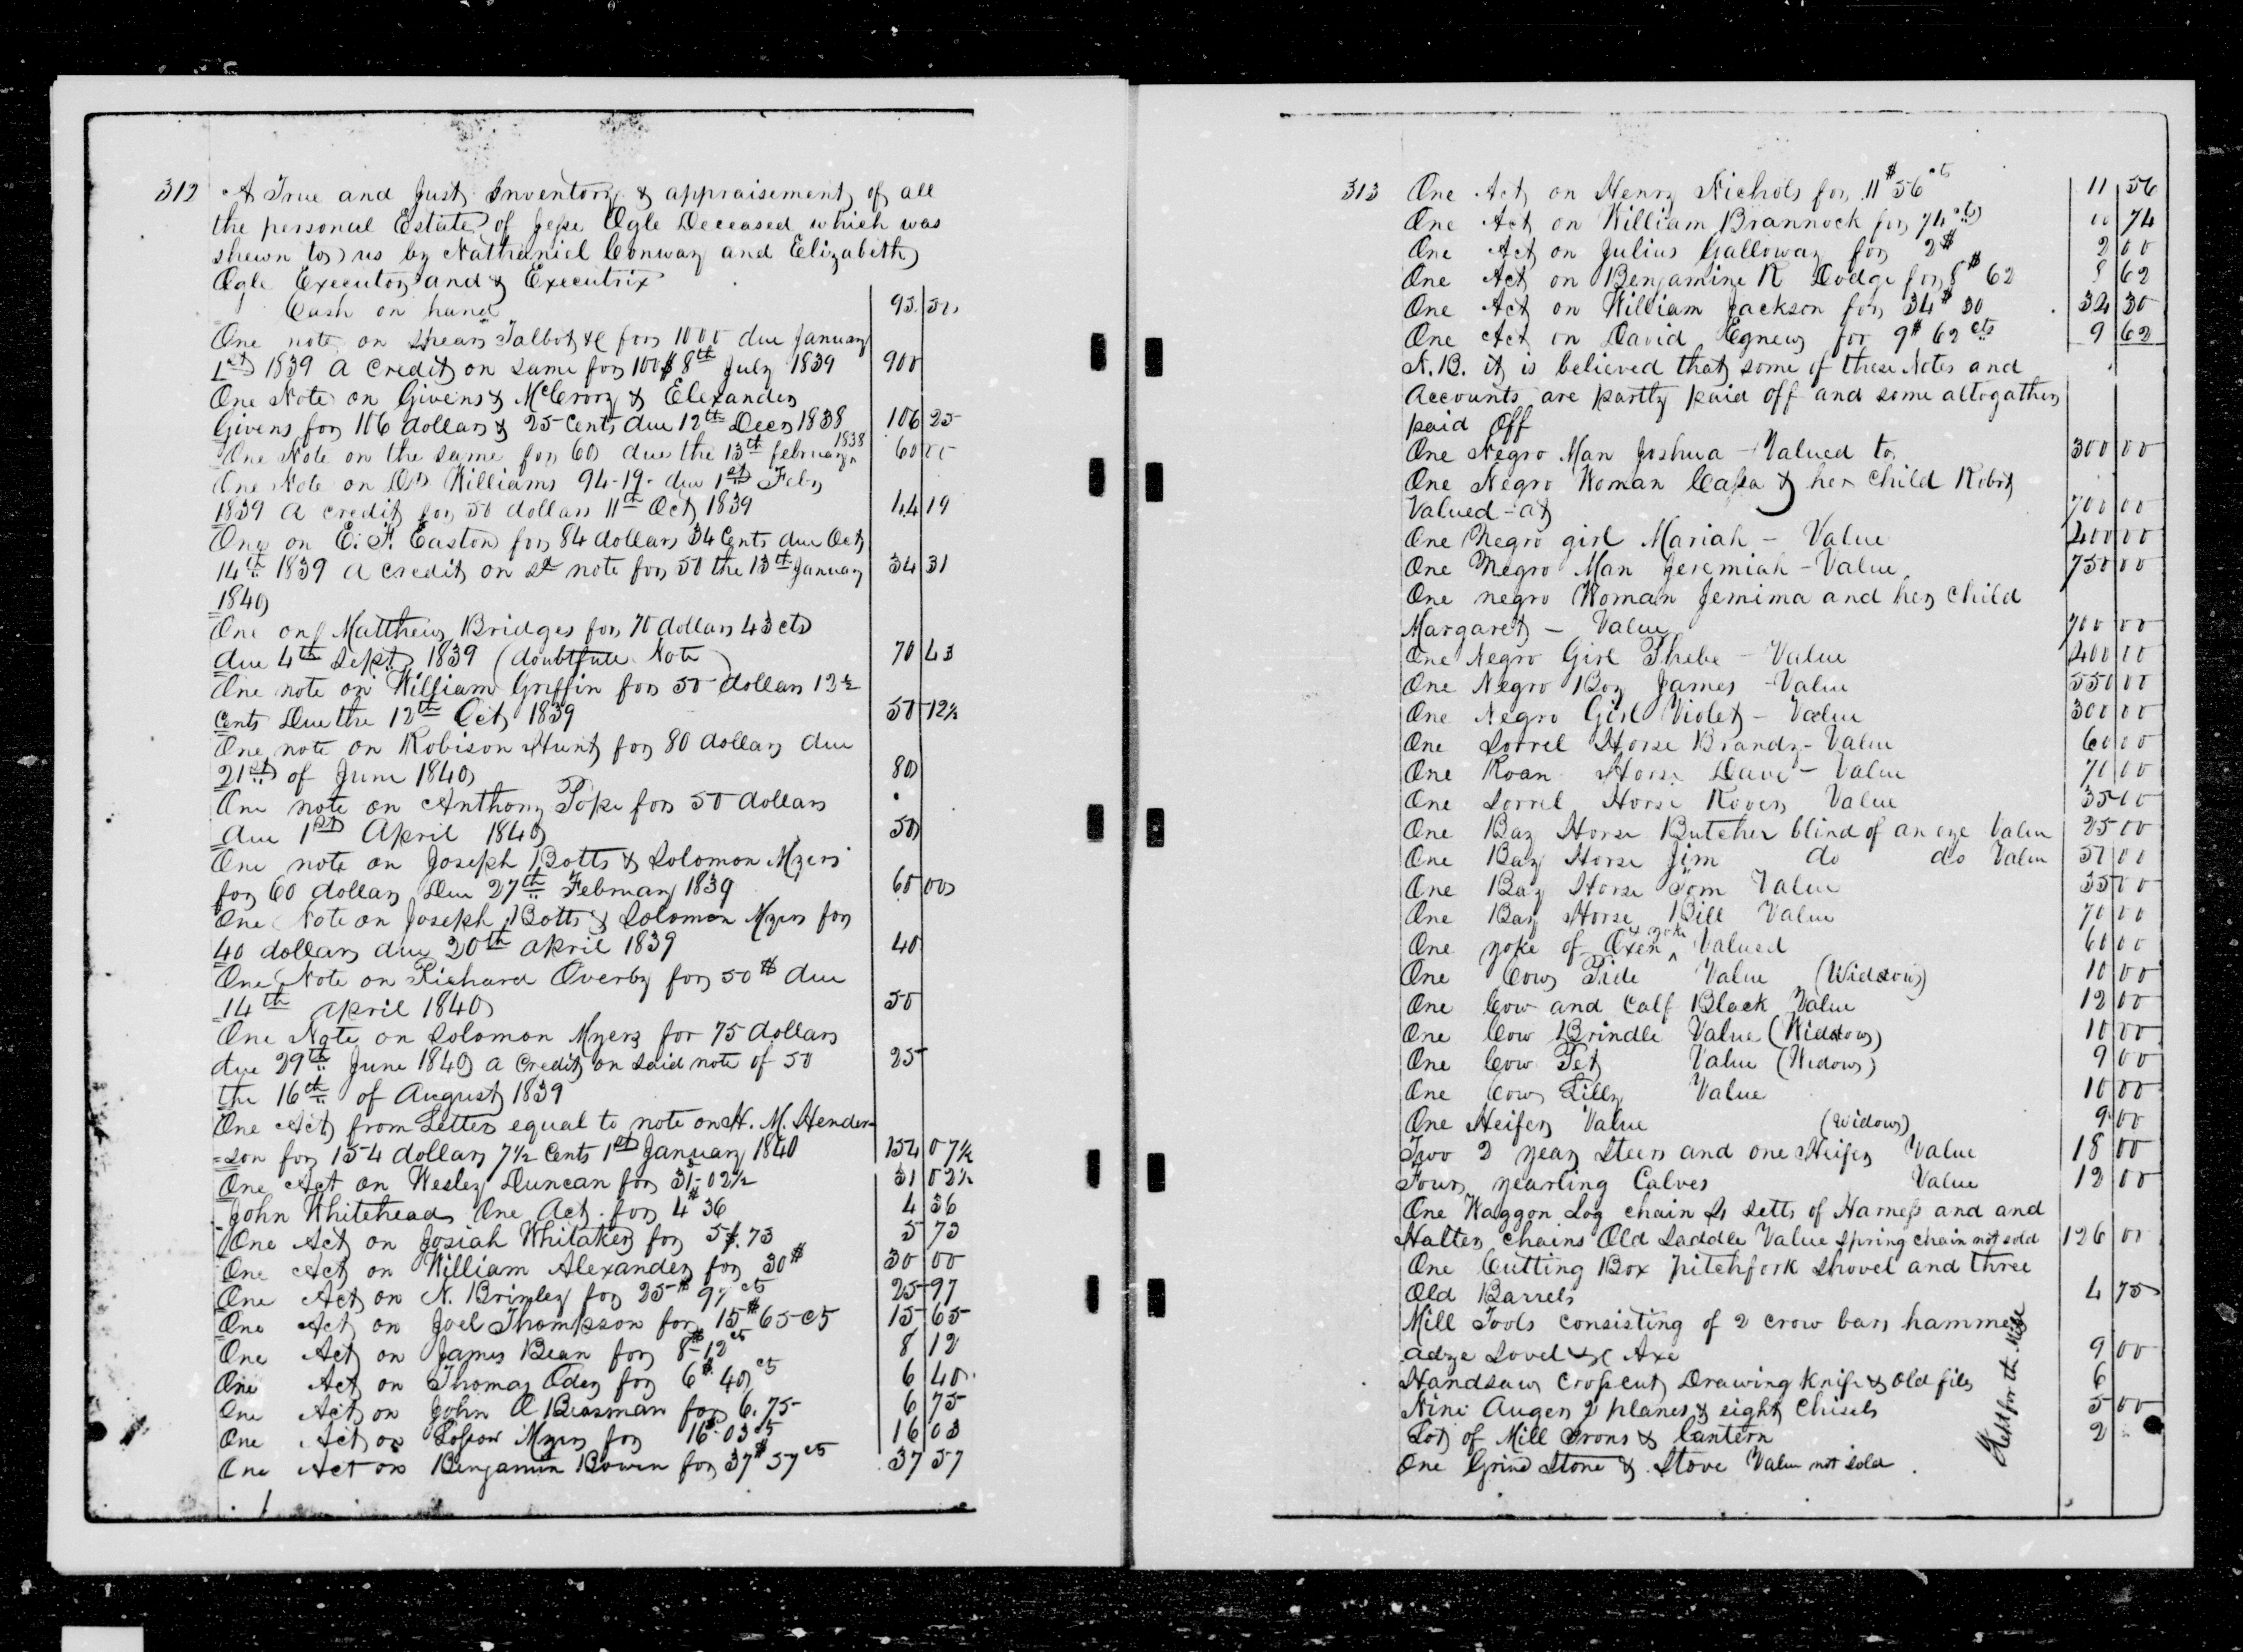 312 A True and Just Inventory & appraisement of all
the personal Estate of Jesse Ogle Deceased which was
shewn to us by Nathaniel Conway and Elizabeth
Ogle Executor and & Executrix
Cash on hand 95.50
One note on Spears Talbot &C for 1000 due January
1st 1839 a credit on same for 100$ 8th July 1839 900
One Note on Givens & McCrory & Elexander
Givens for 106 dollars & 25 Cents due 12th Decr 1838 106 25
One Note on the same for 60 due the 13th february 1838 60 00
One Note on Williams 94-19- due 1st Feby
1839 a credit for 50 dollars 11th Oct 1839 44 19
One on E. F. Easton for 84 dollars 34 Cents due Oct
14th 1839 a credit on sd note for 50 the 13th January 34 31
1840
One on Matthew Bridges for 70 dollars 43 cts
due 4th Sept 1839 (doubtfull Note) 70 43
One note on William Griffin for 50 dollars 12 1/2
Cents Due the 12th Oct 1839 50 12 1/2
One note on Robison Hunt for 80 dollars due
21st of June 1840 80
One note on Anthony Pope for 50 dollars
due 1st April 1840 50
One note on Joseph Botts & Solomon Myers
for 60 dollars Due 27th February 1839 60 00
One Note on Joseph Botts & Solomon Myers for
40 dollars due 20th april 1839 40
One Note on Richard Overby for 50$ due
14th april 1840 50
One Note on Solomon Myers for 75 dollars
due 29th June 1840 a Credit on said note of 50 25
the 16th of August 1839
One Act from Letter equal to note on H. M. Hender
=son for 154 dollars 7 1/2 Cents 1st January 1840 154 07 1/2
One Act on Wesley Duncan for 31-02 1/2 31 02 1/2
John Whitehead One Act. for 4$36 4 36
One Act on Josiah Whitaker for 5$.73 5 73
One Act on William Alexander for 30$ 30 00
One Act on N. Brimley for 25$ 97cts 25 97
One Act on Joel Thompson for 15$ 65 cts 15 65
One Act on James Bean for 8$-12cts 8 12
One Act on Thomas Oden for 6$ 40cts 6 40
One Act on John Q Beasman for 6.75 6 75
One Act on Myers for 16$.03cts 16 03
One Act on Benjamin Bowen for 37$ 57cts 37 57
313 One Act on Henry Nichols for 11$56cts 11 56
One Act on William Brannock for 74 cts 00 74
One Act on Julius Galloway for 2$ 2 00
One Act on Benjamine R Dodge for 8$ 62 8 62
One Act on William Jackson for 34$ 30 34 30
One Act on David Egnew for 9$ 62 cts 9 62
N.B. it is believed that some of these Notes and
Accounts are partly paid off and some altogather
paid Off
One Negro Man Joshua - Valued to 300 00
One Negro Woman Cassa & her child Robert
Valued - at 700 00
One Negro girl Mariah - Value 400 00
One Negro Man Jeremiah - Value 750 00
One negro Woman Jemima and her child
Margaret - Value 700 00
One Negro Girl Phebe - Value 400 00
One Negro Boy James - Value 550 00
One Negro Girl Violet - Value 300 00
One Sorrel Horse Brandy - Value 60 00
One Roan Horse Dave - Value 70 00
One Sorrel Horse Rover Value 35 00
One Bay Horse Butcher blind of an eye Value 25 00
One Bay Horse Jim do do Value 50 00
One Bay Horse Tom Value 35 00
One Bay Horse Bill Value 70 00
One yoke of Oxen & yoke Valued 60 00
One Cow Pide Value (Widdow) 10 00
One Cow and Calf Black Value 12 00
One Cow Brindle Value (Widdow) 10 00
One Cow Pet Value (Widow) 9 00
One Cow Lilly Value 10 00
One Heifer Value (Widow) 9 00
Two 2 year Steers and one Heifer Value 18 00
Four yearling Calves Value 12 00
One Waggon Log chain 4 setts of Harness and and
Halter chains Old Saddle Value Spring chain not sold 126 00
One Cutting Box pitchfork Shovel and three
Old Barrels 4 75
Mill Tools consisting of 2 crow bars hammer
adze Sovel &c Axe 9 00
Handsaw Crosscut Drawing knife & old files 6
Nine Augers 2 planes & eight Chisels 5 00
Lot of Mill Irons & Cantern 2
One Grind Stone & Stove Value not sold
Held for the Mill